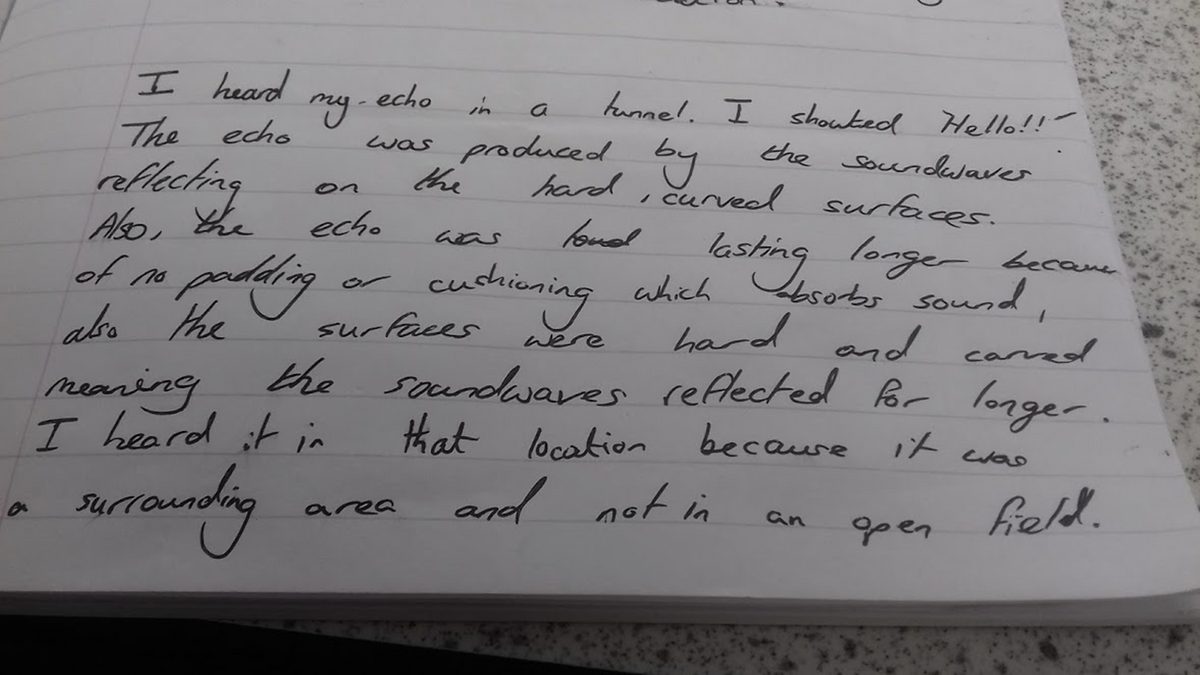 I heard my echo in a tunnel. I shouted Hello!!
The echo was produced by the soundwaves
reflecting on the hard, curved surfaces.
Also, the echo was loud lasting longer because
of no padding or cushioning which absorbs sound,
also the surfaces were hard and curved
meaning the soundwaves reflected for longer.
I heard it in that location because it was
a surrounding area and not in an open field.